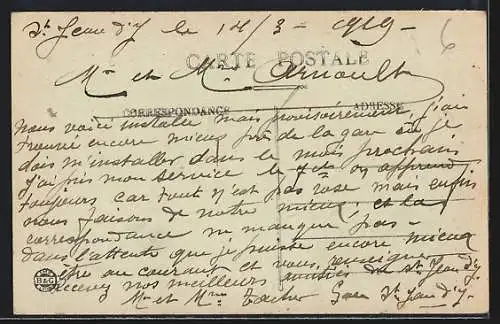 St Jean d'Y le 14/3 - 1919 - 6
CARTE POSTALE
Mr et Me Arnoult
CORRESPONDANCE ADRESSE
Nous voici installés mais provisoirement j'ai
trouvé encore mieux près de la gare où je
dois m'installer dans le mois prochain
j'ai pris mon service le on apprend
toujours car tout n'est pas rose mais enfin
nous faisons de notre mieux et la
correspondance ne manque pas -
dans l'attente que je puisse encore mieux
être au courant et vous renseigner
recevez nos meilleurs amitiés de St Jean d'Y
Mr et Mme Gare St Jean d'Y
B&G